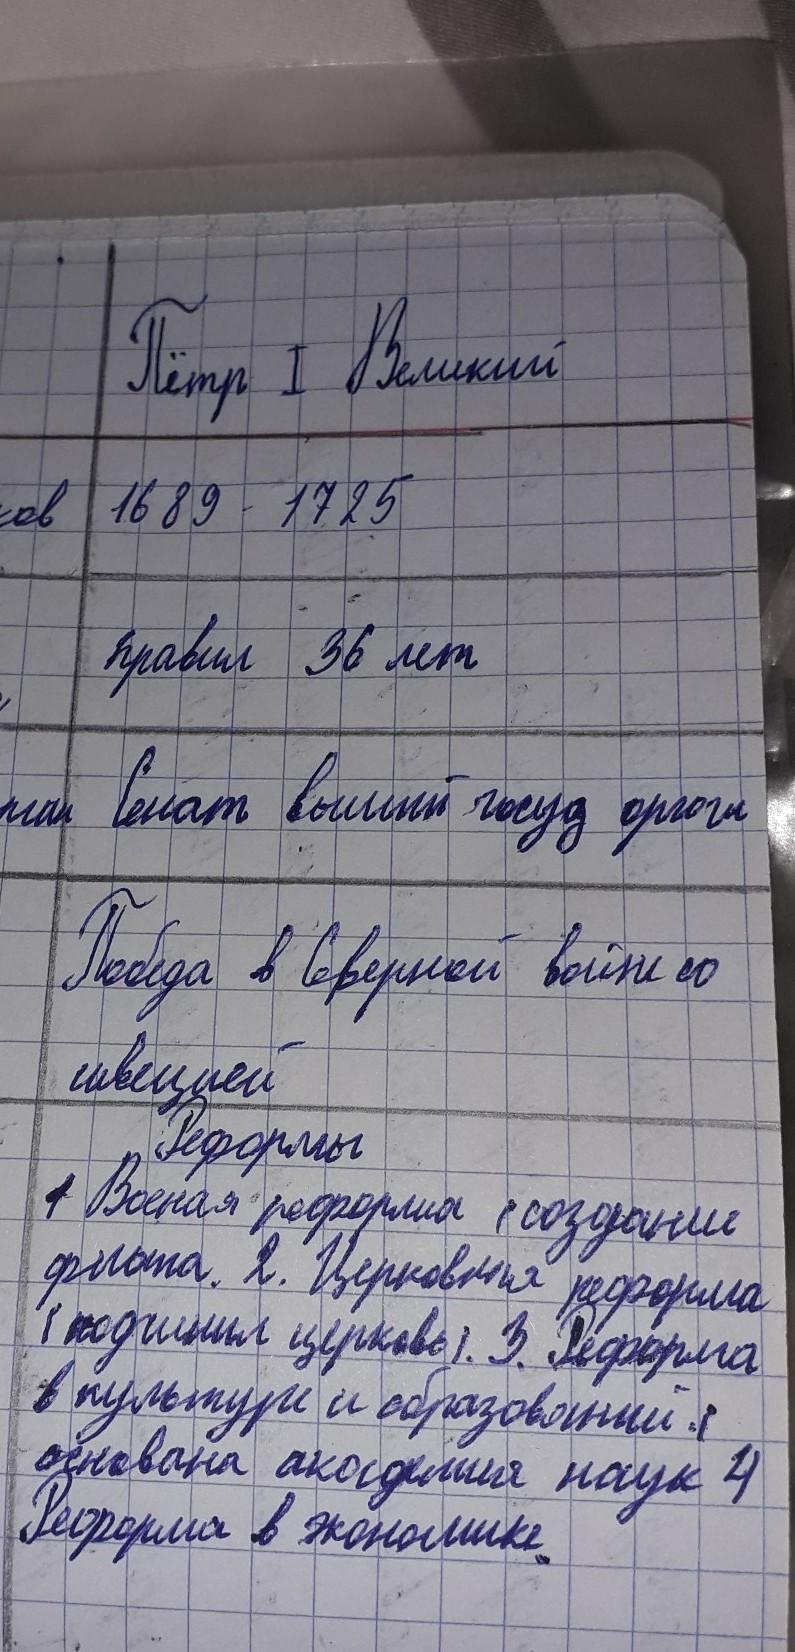 Пётр I Великий
ков 1689 - 1725
правил 36 лет
Сенат высший госуд орган
Победа в Северной войне со
швецией
Реформы
1 Военая реформа (создание
флота. 2. Церковная реформа
(подчинил церковь). 3. Реформа
в культуре и образований. (
основана академия наук 4)
Реформа в экономике.